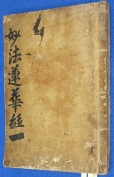 妙法蓮華經一